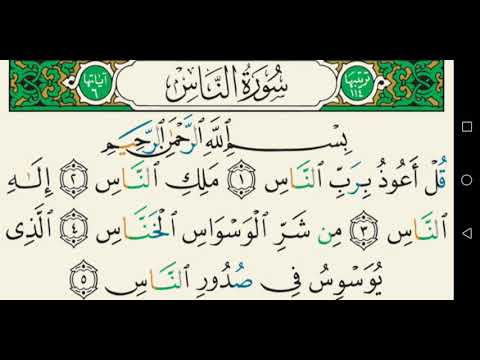 ترتيبها ١١٤ سُورَةُ النَّاسِ آياتها ٦
بِسْمِ اللَّهِ الرَّحْمَٰنِ الرَّحِيمِ
قُلْ أَعُوذُ بِرَبِّ النَّاسِ ١ مَلِكِ النَّاسِ ٢ إِلَٰهِ
النَّاسِ ٣ مِن شَرِّ الْوَسْوَاسِ الْخَنَّاسِ ٤ الَّذِي
يُوَسْوِسُ فِي صُدُورِ النَّاسِ ٥